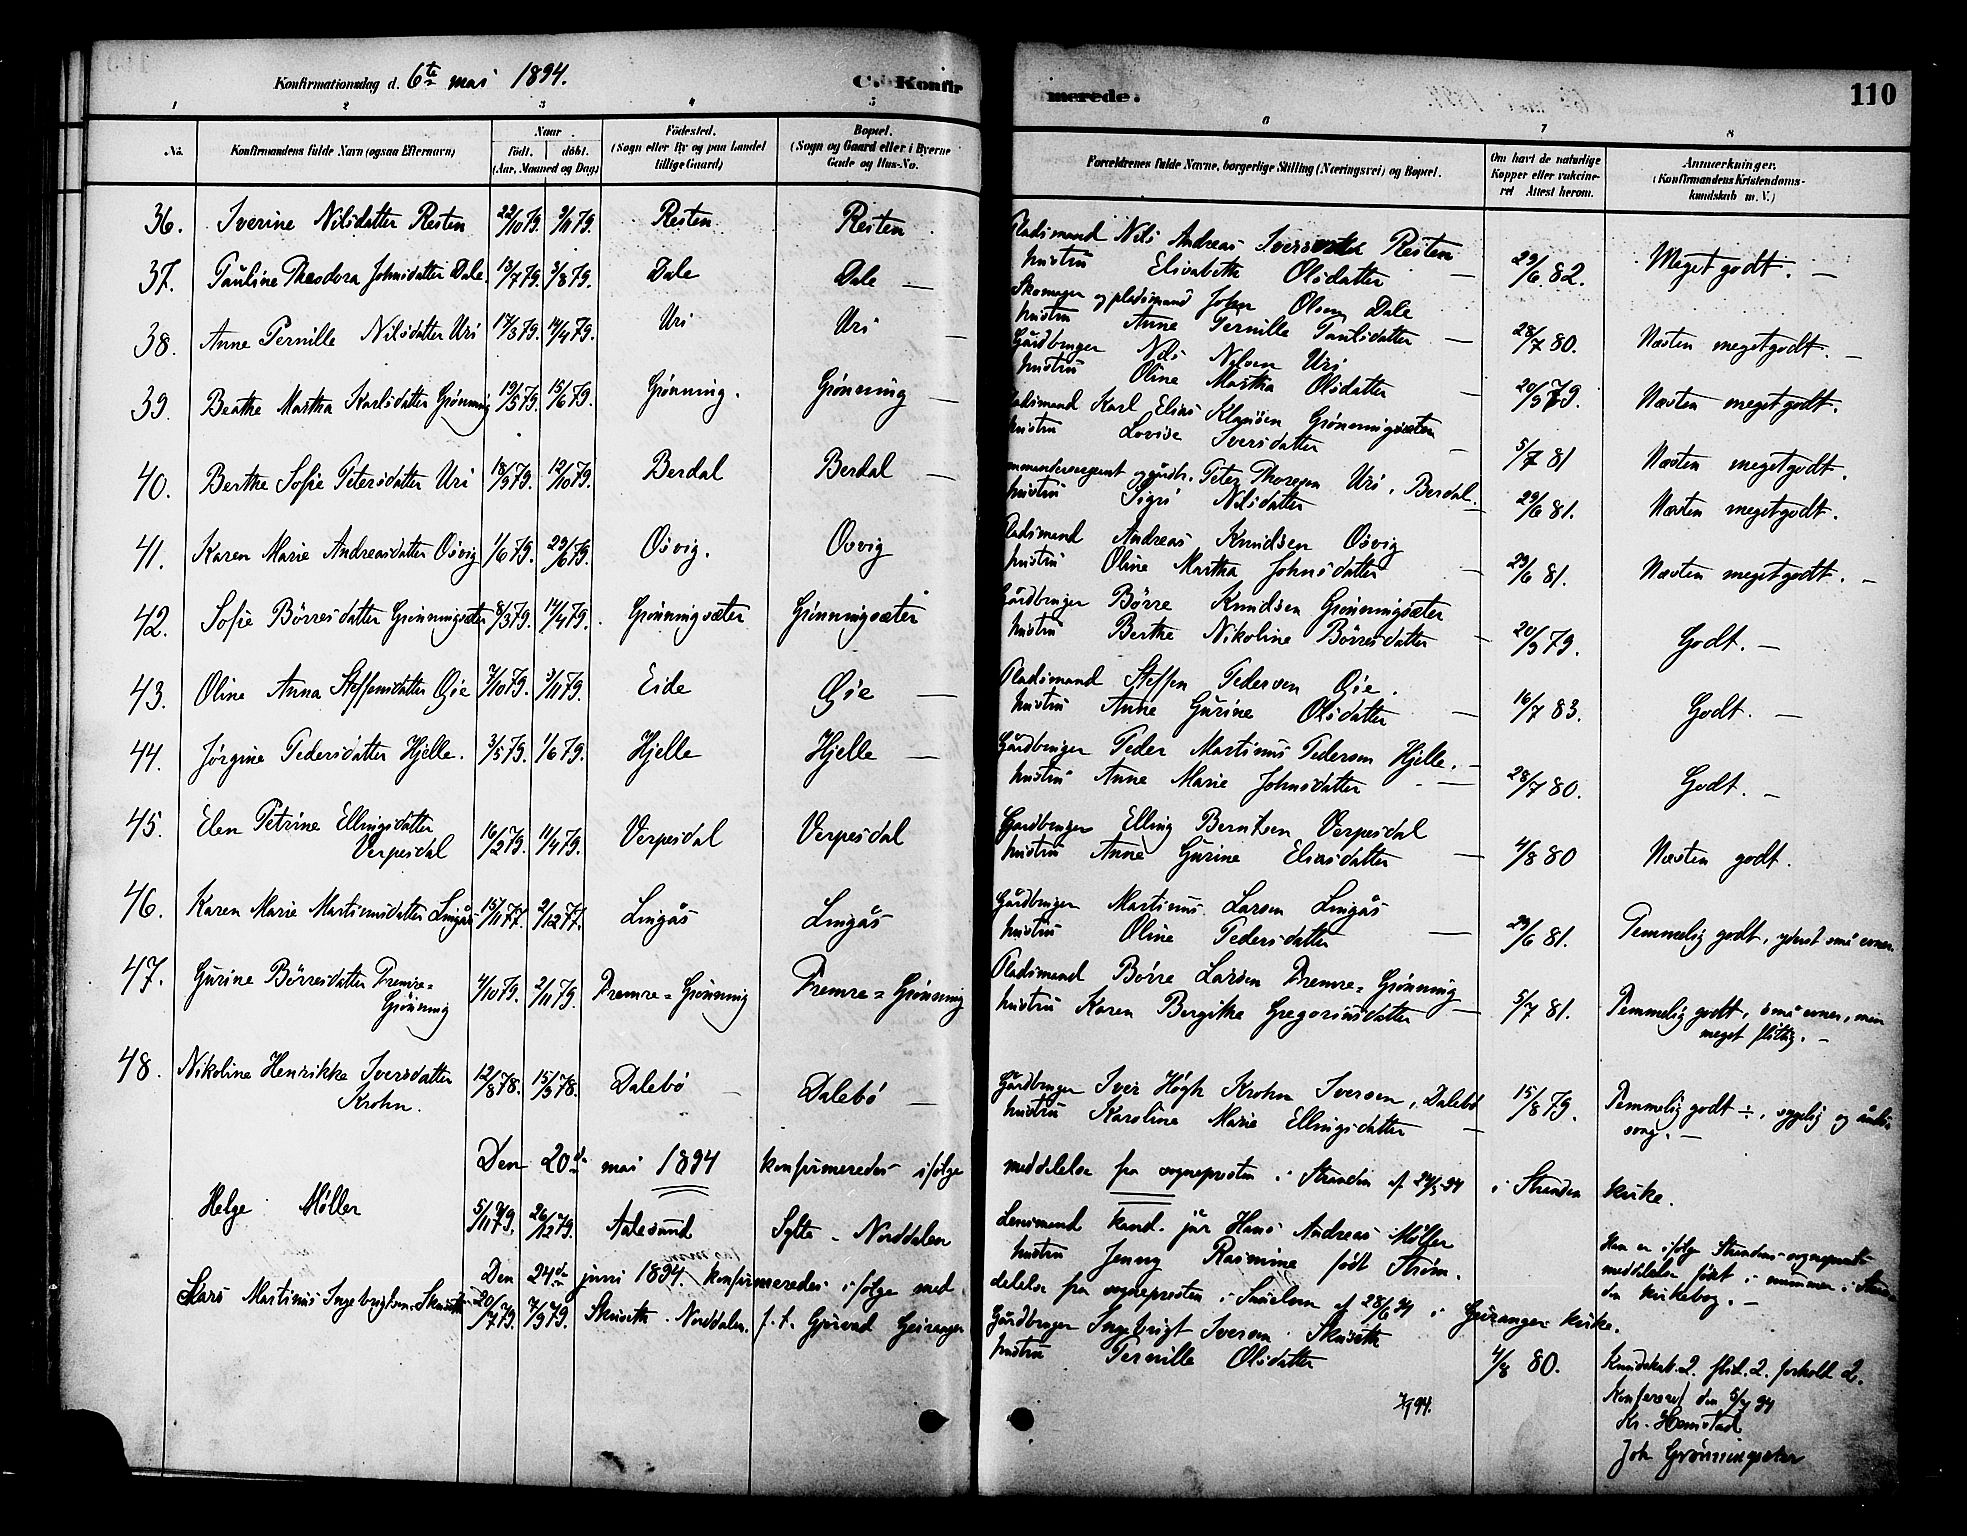 Konfirmationsdag d. 6te mai 1894.
C. Konfir
merede.
110
1 2 3 4 5 6 7 8
No. Konfirmandens fulde Navn (ogsaa Efternavn)
Naar
født. døbt.
(Aar, Maaned og Dag)
Fødested.
(Sogn eller By og paa Landet
tillige Gaard)
Bopæl.
(Sogn og Gaard eller i Byerne
Gade og Hus-No.
Forældrenes fulde Navne, borgerlige Stilling (Næringsvei) og Bopæl.
Om havt de naturlige
Kopper eller vakcine-
ret Attest herom.
Anmærkninger.
(Konfirmandens Kristendoms-
kundskab m. V.)
36. Iverine Nilsdatter Resten 22/10 79. 9/11 79. Resten Resten
Pladsmand Nils Andreas Resten
hustru Elisabeth Olsdatter — 29/6 82. Meget godt. —
37. Pauline Theodora Johnsdatter Dale. 13/7 79. 3/8 79. Dale Dale —
Skomager og pladsmand John Olsen Dale
hustru Anne Pernille Paulsdatter — 28/7 80. Næsten meget godt. —
38. Anne Pernille Nilsdatter Uri 17/3 79. 14/4 79. Uri Uri —
Gårdbruger Nils Nilsen Uri
hustru Oline Martha Olsdatter — 20/9 79. Næsten meget godt.
39. Beathe Martha Karlsdatter Grønning 19/5 79. 15/6 79. Grønning. Grønning —
Pladsmand Karl Elias Klausen Grønningsæter
hustru Lovise Iversdatter — 5/7 81 Næsten meget godt.
40. Berthe Sofie Petersdatter Uri 18/9 79. 12/10 79. Berdal Berdal —
Peter Thoresen Uri, Berdal.
hustru Sigri Nilsdatter — 29/6 81. Næsten meget godt.
41. Karen Marie Andreasdatter Osvig 1/6 79. 29/6 79. Osvig. Osvig
Pladsmand Andreas Knudsen Osvig
hustru Oline Martha Johnsdatter — 29/6 81. Næsten meget godt. —
42. Sofie Børresdatter Grønningsæter 8/3 79. 14/4 79. Grønningsæter Grønningsæter
Gårdbruger Børre Knudsen Grønningsæter
hustru Berthe Nikoline Børresdatter — 20/9 79. Godt. —
43. Oline Anna Steffensdatter Øie 7/10 79. 3/11 79. Eide Øie —
Pladsmand Steffen Pedersen Øie.
hustru Anne Gurine Olsdatter — 16/7 83. Godt. —
44. Jørgine Pedersdatter Hjelle. 3/5 79. 1/6 79. Hjelle Hjelle —
Gårdbruger Peder Martinus Pedersen Hjelle. —
hustru Anne Marie Johnsdatter — 28/7 80. Godt. —
45. Elen Petrine Ellingsdatter
Verpesdal 16/2 79. 11/4 79. Verpesdal Verpesdal
Gårdbruger Elling Berntsen Verpesdal
hustru Anne Gurine Eliasdatter — 4/8 80 Næsten godt.
46. Karen Marie Martinusdatter Lingås 15/11 77. 2/12 77. Lingås Lingås
Gårdbruger Martinus Larsen Lingås
hustru Oline Pedersdatter — 29/6 81. Temmelig godt, yderst små evner.
47. Gurine Børresdatter Fremre=
Grønning 4/10 79. 2/11 79. Fremre=Grønning Fremre=Grønning
Pladsmand Børre Larsen Fremre=Grønning
hustru Karen Bergithe Gregoriusdatter — 5/7 81. Temmelig godt, små evner, men
meget flittig. —
48. Nikoline Henrikke Iversdatter
Krohn. 12/8 78. 15/9 78. Dalebø — Dalebø —
Gårdbruger Iver Høgh Krohn Iversen, Dalebø
hustru Karoline Marie Ellingsdatter — 15/8 79. Temmelig godt ÷, sygelig og ånds-
svag. —
Den 20de mai 1894 konfirmeredes ifølge meddelelse fra sognepresten i Stranden af 24/5 94 i Stranden kirke.
Helge Møller 5/11 79. 26/12 79. Aalesund Sylte - Norddalen
Lensmand kand. jur Hans Andreas Møller
hustru Jenny Rasmine født Strøm.
Han er ifølge Strandens sogneprests
meddelelse ført i nummer i Stran-
den kirkebog. —
Den 24de juni 1894 konfirmeredes ifølge med-
delelse fra sognepresten i af 28/6 94 i Geiranger kirke.
Lars Martinus Ingebrigtsen Skuseth 20/7 79. 7/9 79. Skuseth. Norddalen. f. t. Gjørvad Geiranger
Gårdbruger Ingebrigt Iversen Skuseth
hustru Pernille Olsdatter 4/8 80. Kundskab. 2. flid. 2. forhold 2.
Konfereret den 5/7 94
Kr. Hemstad
Joh Grønningsæter